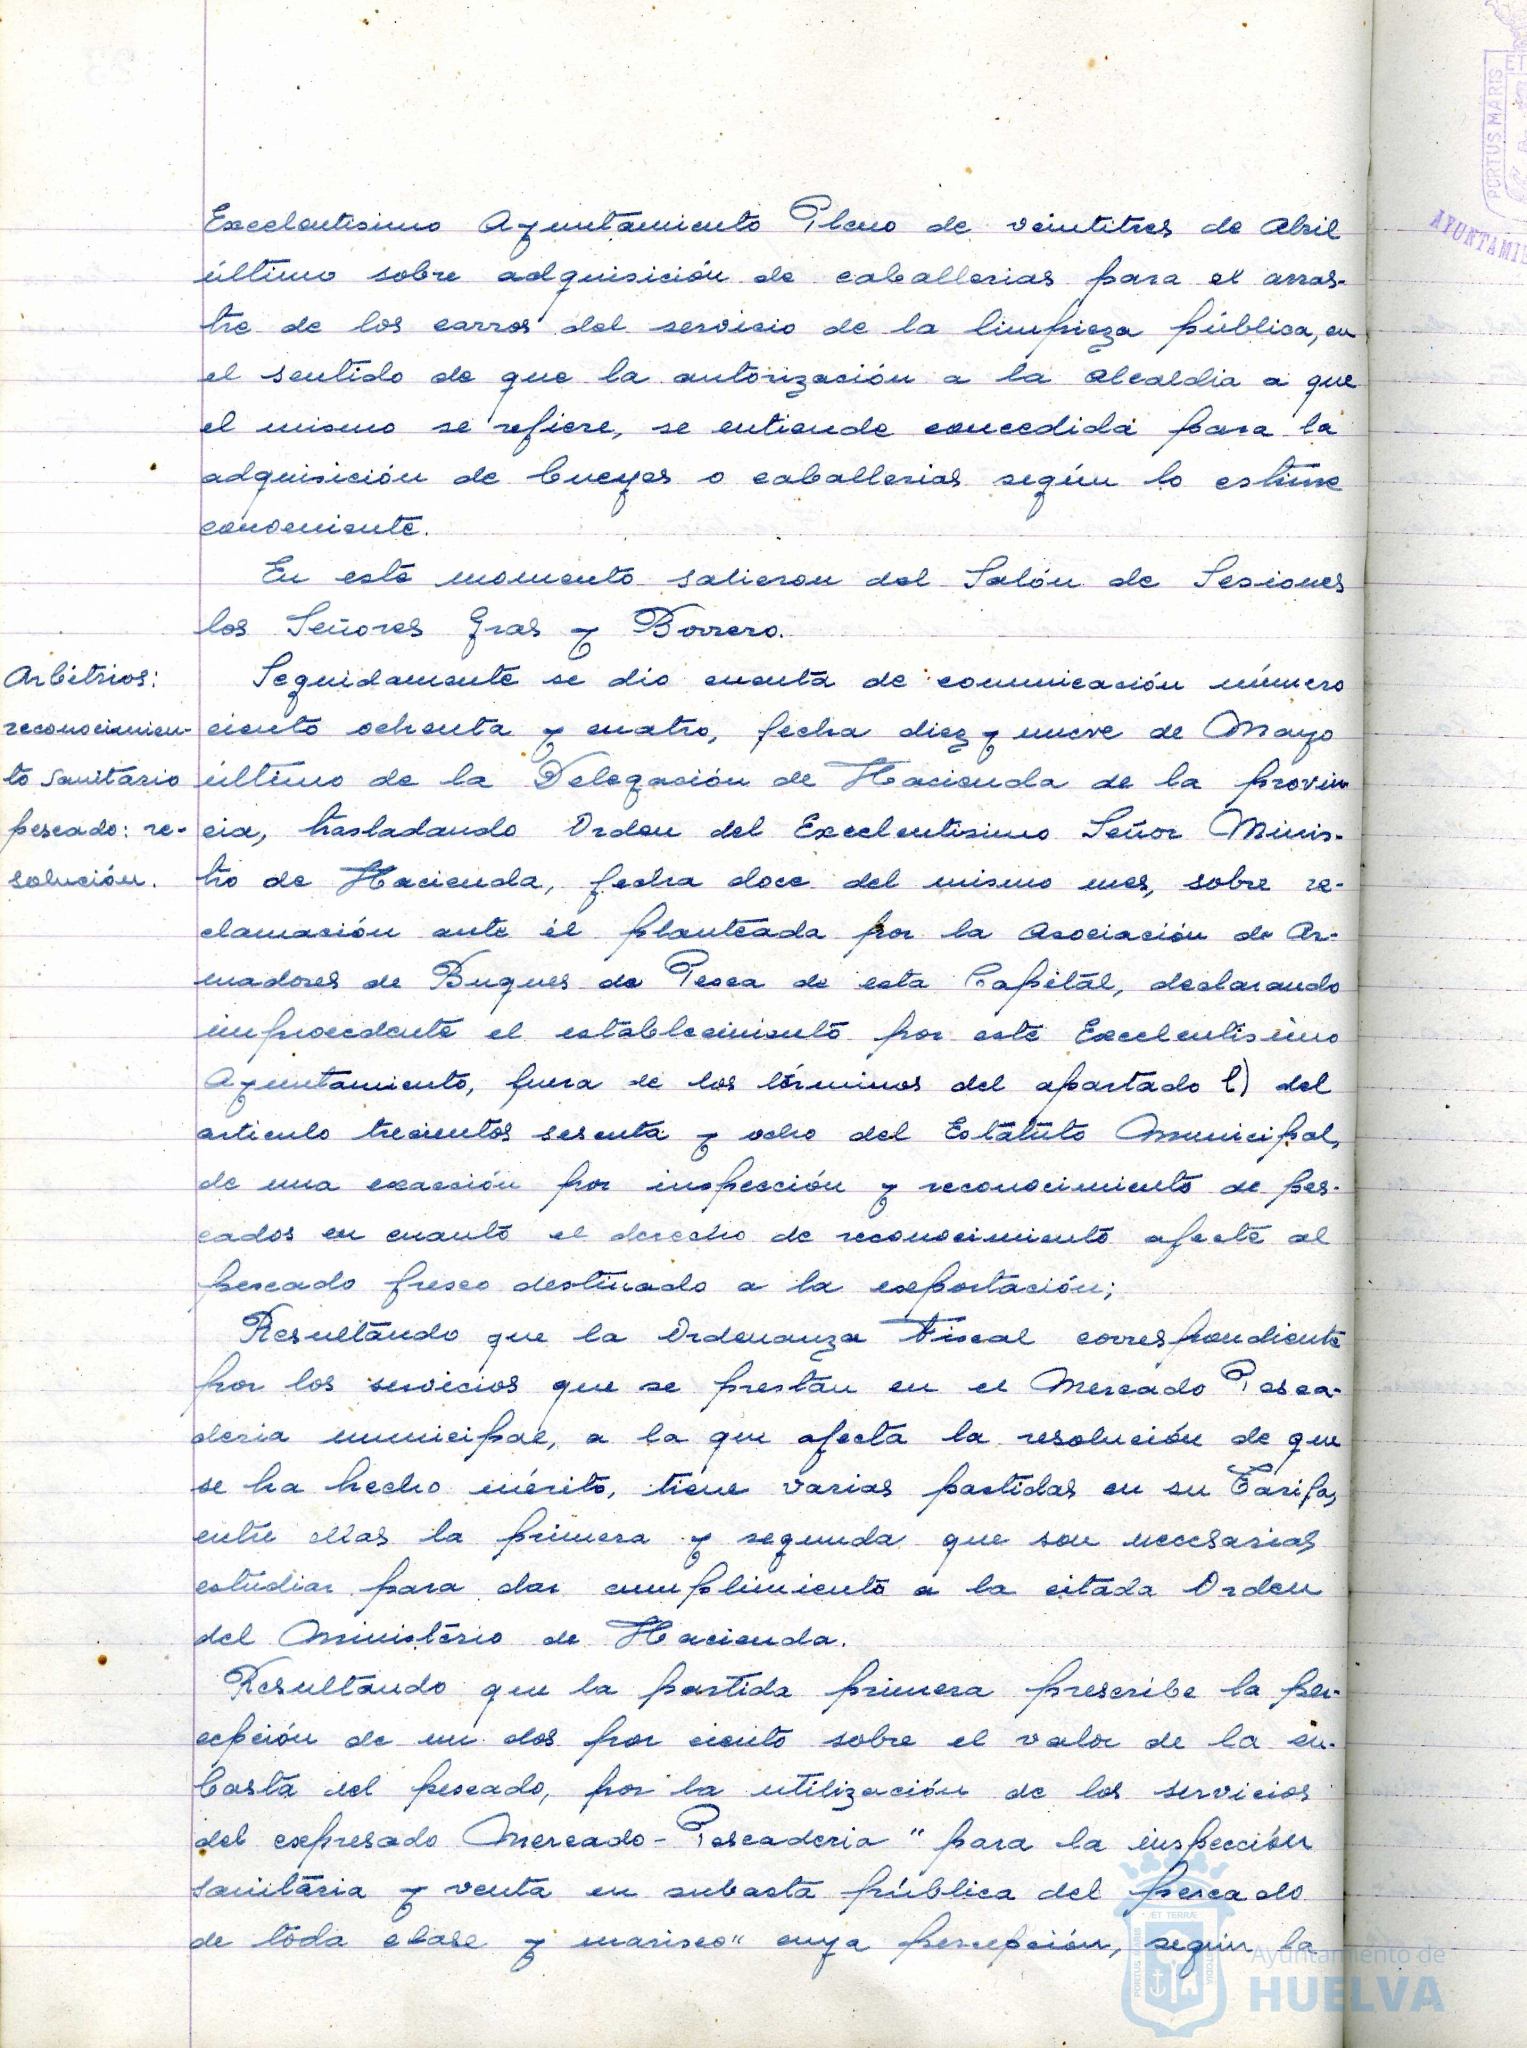 Excelentisimo Ayuntamiento Pleno de veintitres de Abril
último sobre adquisición de caballerias para el arras-
tre de los carros del servicio de la limpieza pública, en
el sentido de que la autorización a la Alcaldia a que
el mismo se refiere, se entiende concedida para la
adquisición de bueyes o caballerias según lo estime
conveniente.
En este momento salieron del Salón de Sesiones
los Señores Gras y Borrero.
Arbitrios:
reconocimien-
to sanitario
pescado: re-
solución.
Seguidamente se dio cuenta de comunicación número
ciento ochenta y cuatro, fecha diez y nueve de Mayo
último de la Delegación de Hacienda de la provin
cia, trasladando Orden del Excelentisimo Señor Minis-
tro de Hacienda, fecha doce del mismo mes, sobre re-
clamación ante él planteada por la Asociación de Ar-
madores de Buques de Pesca de esta Capital, declarando
improcedente el establecimiento por este Excelentisimo
Ayuntamiento, fuera de los términos del apartado l) del
articulo trecientos sesenta y ocho del Estatuto Municipal,
de una exacción por inspección y reconocimiento de pes-
cados en cuanto el derecho de reconocimiento afecte al
pescado fresco destinado a la exportación;
Resultando que la Ordenanza Fiscal correspondiente
por los servicios que se prestan en el Mercado Pesca-
deria municipal, a la que afecta la resolución de que
se ha hecho mérito, tiene varias partidas en su Tarifa,
entre ellas la primera y segunda que son necesarias
estudiar para dar cumplimiento a la citada Orden
del Ministerio de Hacienda.
Resultando que la partida primera prescribe la per-
cepción de un dos por ciento sobre el valor de la su-
basta del pescado, por la utilización de los servicios
del expresado Mercado-Pescaderia "para la inspección
sanitaria y venta en subasta pública del pescado
de toda clase y marisco" cuya percepción, según la
PORTUS MARIS
ET
AYUNTAMIE
ET TERRÆ
PORTUS MARIS
CUSTODIA
Ayuntamiento de
HUELVA